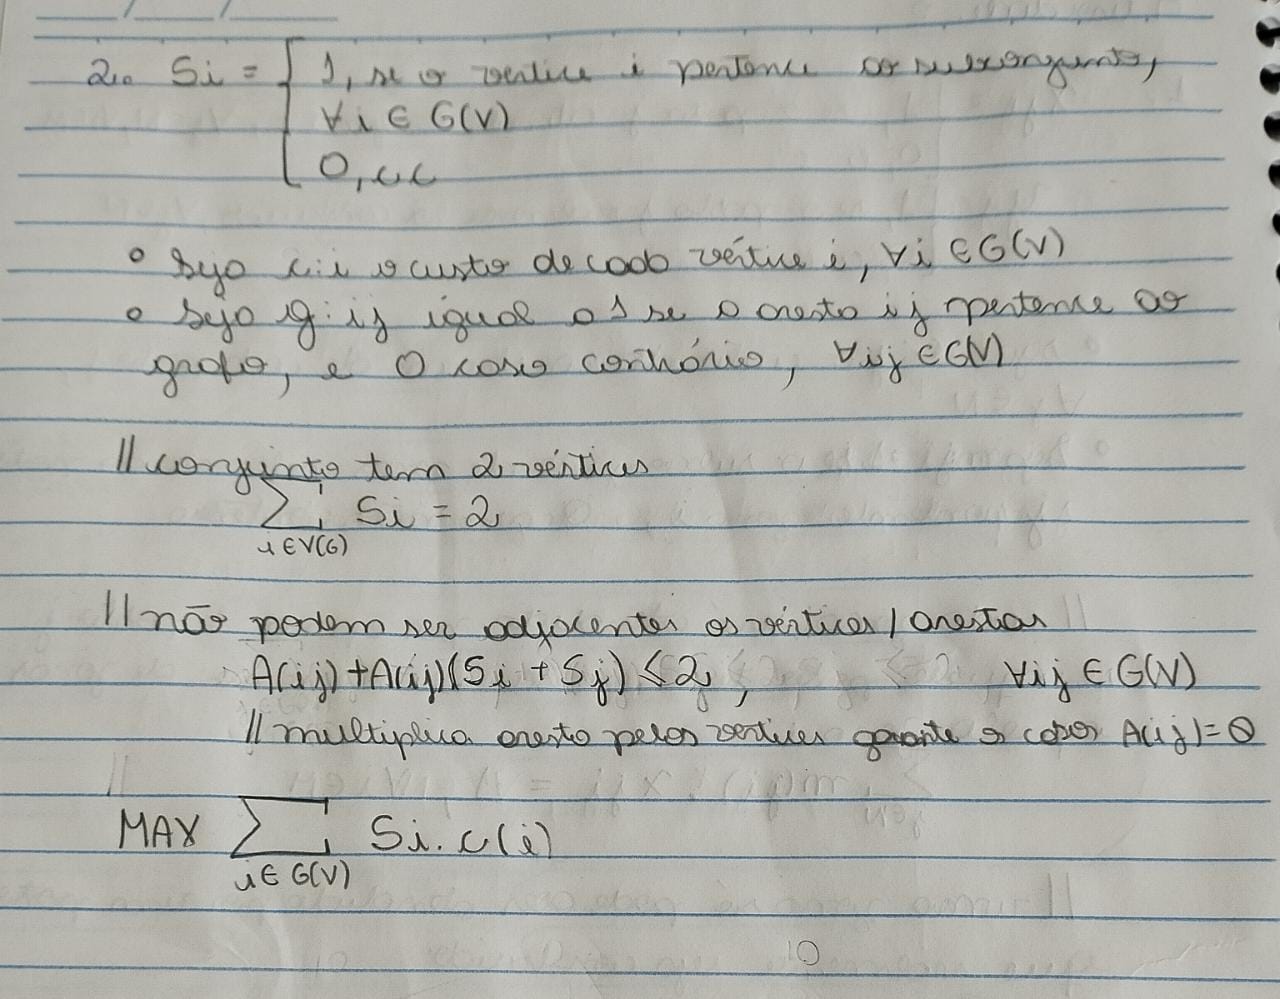 2. Si = { 1, se o vertice i pertence ao subconjunto,
∀i ∈ G(V)
0, cc
• Seja c:i o custo de cada vértice i, ∀i ∈ G(V)
• Seja g:ij igual a 1 se a aresta ij pertence ao
grafo, e 0 caso contrário, ∀ij ∈ G(V)
// conjunto tem 2 vértices
∑ Si = 2
i ∈ V(G)
// não podem ser adjacentes os vértices / arestas
A(ij) + A(ij)(Si + Sj) ≤ 2, ∀ij ∈ G(V)
// multiplica aresta pelos vertices garante o caso A(ij) = 0
MAX ∑ Si. c(i)
i ∈ G(V)